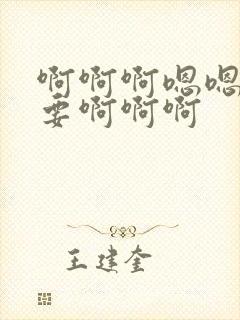 啊啊啊嗯嗯
要啊啊啊
王建奎